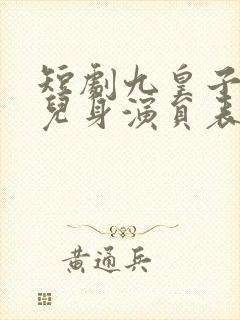 短劇九皇子
兒身演員表
黃通兵